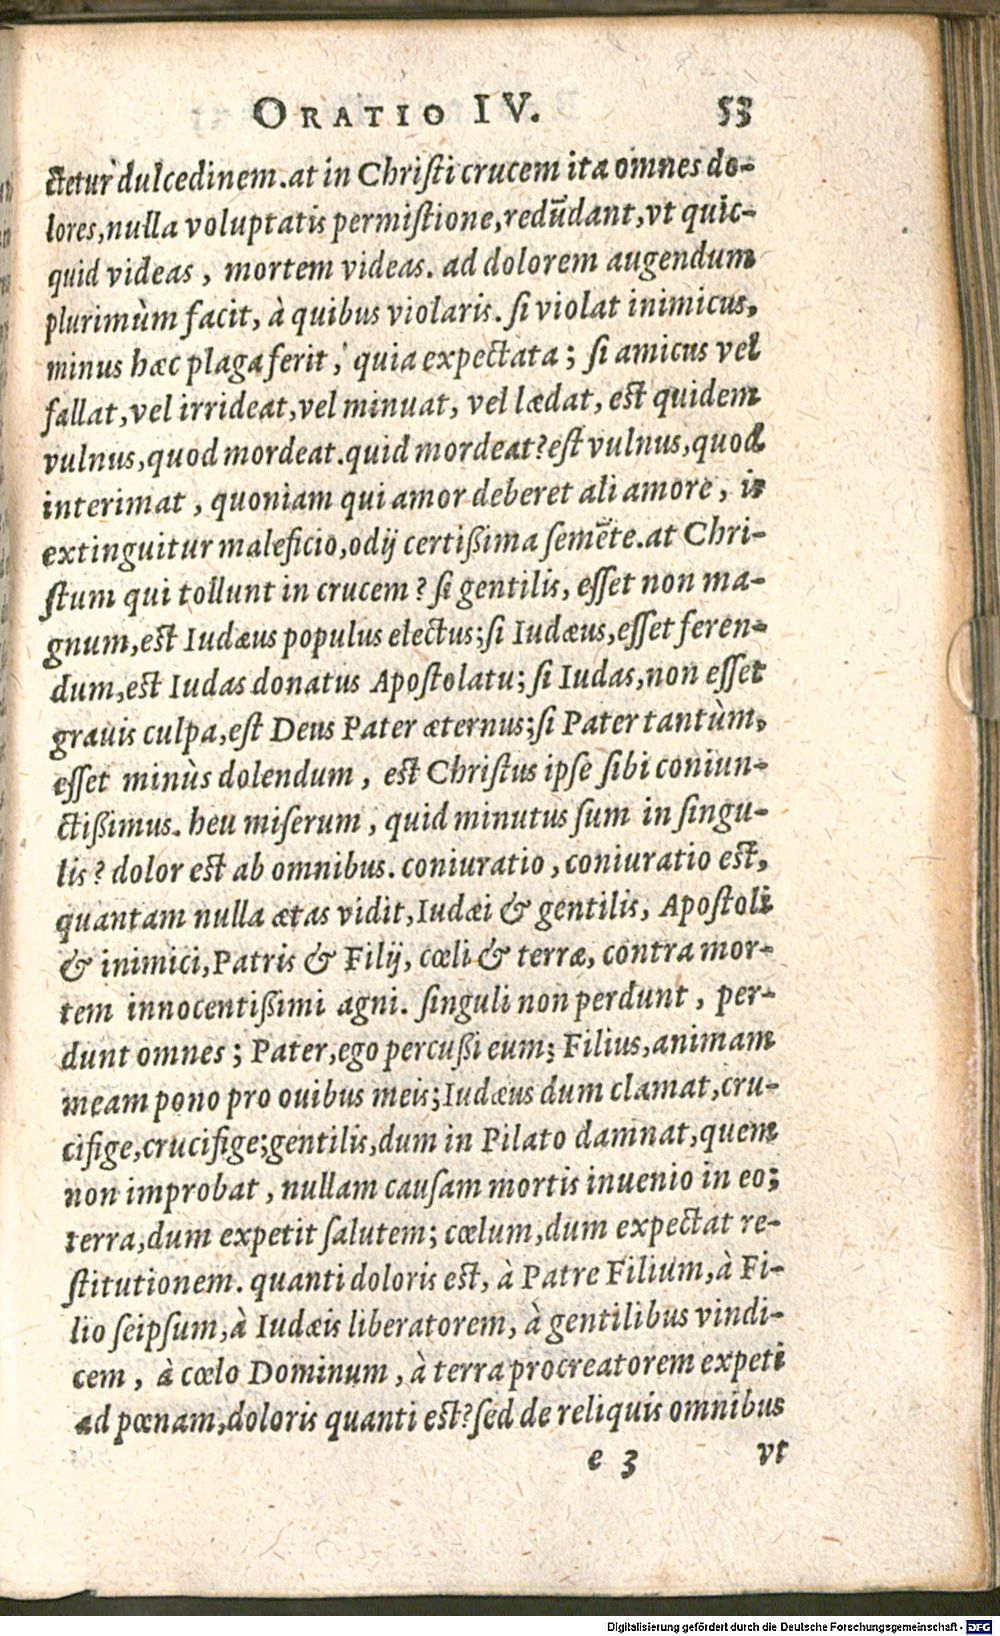 ORATIO IV. 53
ctetur dulcedinem. at in Christi crucem ita omnes do-
lores, nulla voluptatis permistione, redūdant, vt quic-
quid videas, mortem videas. ad dolorem augendum
plurimùm facit, à quibus violaris. si violat inimicus,
minus hæc plaga ferit, quia expectata; si amicus vel
fallat, vel irrideat, vel minuat, vel lædat, est quidem
vulnus, quod mordeat. quid mordeat? est vulnus, quod
interimat, quoniam qui amor deberet ali amore, is
extinguitur maleficio, odij certißima semēte. at Chri-
stum qui tollunt in crucem? si gentilis, esset non ma-
gnum, est Iudæus populus electus; si Iudæus, esset feren-
dum, est Iudas donatus Apostolatu; si Iudas, non esset
grauis culpa, est Deus Pater æternus; si Pater tantùm,
esset minùs dolendum, est Christus ipse sibi coniun-
ctißimus. heu miserum, quid minutus sum in singu-
lis? dolor est ab omnibus. coniuratio, coniuratio est,
quantam nulla ætas vidit, Iudæi & gentilis, Apostoli
& inimici, Patris & Filij, cœli & terræ, contra mor-
tem innocentißimi agni. singuli non perdunt, per-
dunt omnes; Pater, ego percußi eum; Filius, animam
meam pono pro ouibus meis; Iudæus dum clamat, cru-
cifige, crucifige; gentilis, dum in Pilato damnat, quem
non improbat, nullam causam mortis inuenio in eo;
terra, dum expetit salutem; cœlum, dum expectat re-
stitutionem. quanti doloris est, à Patre Filium, à Fi-
lio seipsum, à Iudæis liberatorem, à gentilibus vindi-
cem, à cœlo Dominum, à terra procreatorem expeti
ad pœnam, doloris quanti est? sed de reliquis omnibus
e 3 vt
Digitalisierung gefördert durch die Deutsche Forschungsgemeinschaft - DFG